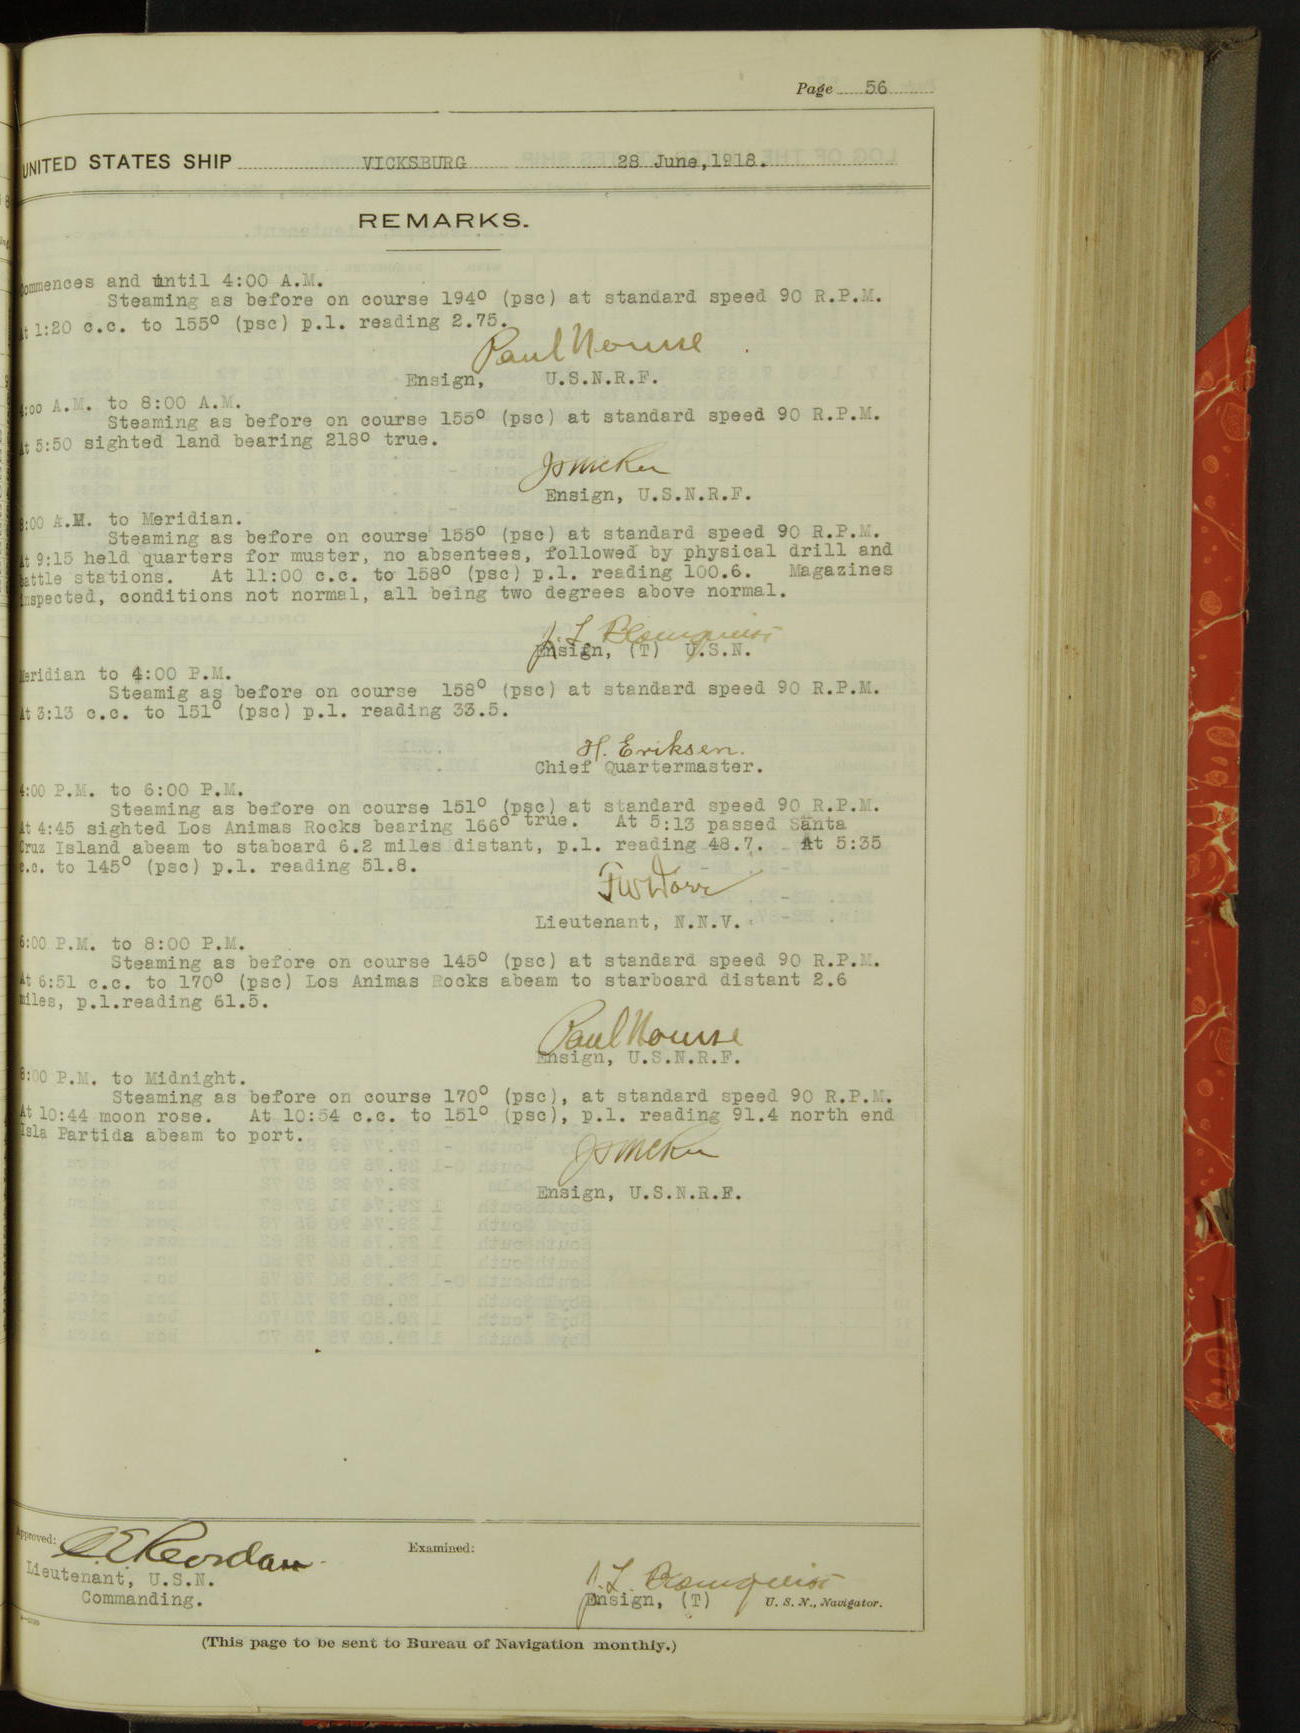 Page 56
UNITED STATES SHIP VICKSBURG 28 June, 1918.
REMARKS.
Commences and until 4:00 A.M.
Steaming as before on course 194° (psc) at standard speed 90 R.P.M.
At 1:20 c.c. to 155° (psc) p.l. reading 2.75.
Paul Nourse
Ensign, U.S.N.R.F.
4:00 A.M. to 8:00 A.M.
Steaming as before on course 155° (psc) at standard speed 90 R.P.M.
At 5:50 sighted land bearing 218° true.
Ensign, U.S.N.R.F.
8:00 A.M. to Meridian.
Steaming as before on course 155° (psc) at standard speed 90 R.P.M.
At 9:15 held quarters for muster, no absentees, followed by physical drill and
battle stations. At 11:00 c.c. to 158° (psc) p.l. reading 100.6. Magazines
inspected, conditions not normal, all being two degrees above normal.
J. L. Blomquist
Ensign, (T) U.S.N.
Meridian to 4:00 P.M.
Steamig as before on course 158° (psc) at standard speed 90 R.P.M.
At 3:13 c.c. to 151° (psc) p.l. reading 33.5.
H. Eriksen.
Chief Quartermaster.
4:00 P.M. to 6:00 P.M.
Steaming as before on course 151° (psc) at standard speed 90 R.P.M.
At 4:45 sighted Los Animas Rocks bearing 166° true. At 5:13 passed Santa
Cruz Island abeam to staboard 6.2 miles distant, p.l. reading 48.7. At 5:35
c.c. to 145° (psc) p.l. reading 51.8.
Lieutenant, N.N.V.
6:00 P.M. to 8:00 P.M.
Steaming as before on course 145° (psc) at standard speed 90 R.P.M.
At 6:51 c.c. to 170° (psc) Los Animas Rocks abeam to starboard distant 2.6
miles, p.l.reading 61.5.
Paul Nourse
Ensign, U.S.N.R.F.
8:00 P.M. to Midnight.
Steaming as before on course 170° (psc), at standard speed 90 R.P.M.
At 10:44 moon rose. At 10:54 c.c. to 151° (psc), p.l. reading 91.4 north end
Isla Partida abeam to port.
Ensign, U.S.N.R.F.
Approved:
Lieutenant, U.S.N.
Commanding.
Examined:
J. L. Blomquist
Ensign, (T) U. S. N., Navigator.
(This page to be sent to Bureau of Navigation monthly.)